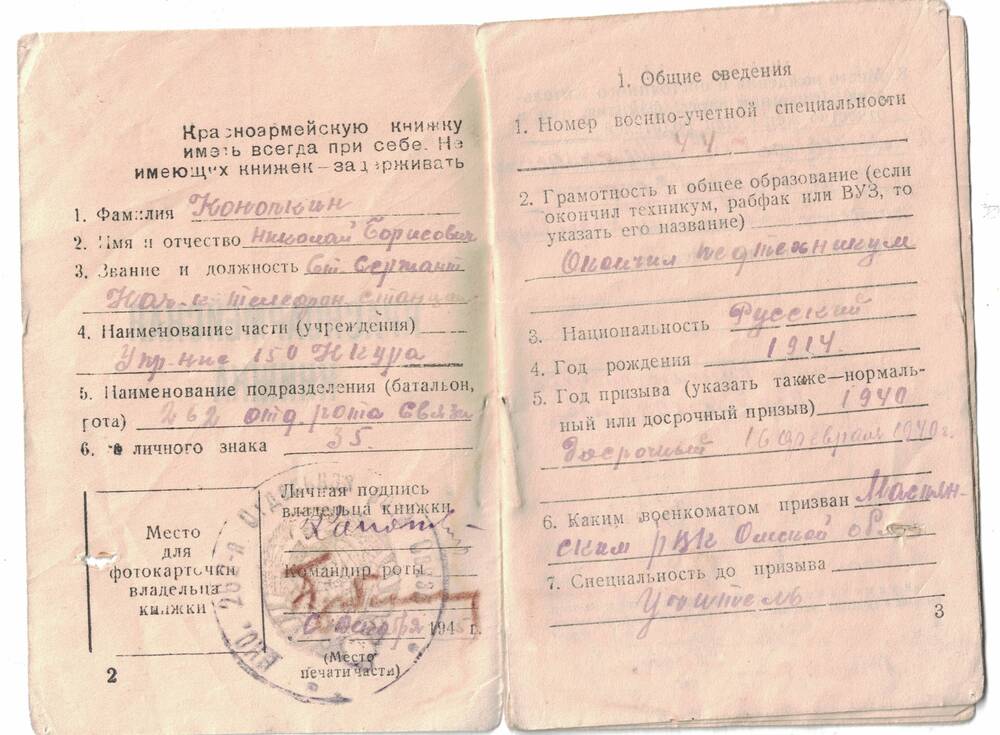 Красноармейскую книжку
иметь всегда при себе. Не
имеющих книжек—задерживать
1. Фамилия Конопкин
2. Имя и отчество Николай Борисович
3. Звание и должность Ст. Сержант
Нач-к телефон. станции
4. Наименование части (учреждения)
Упр-ние 150 Ккура
5. Наименование подразделения (батальон,
рота) 262 отд. рота Связи
6. № личного знака 35.
Место
для
фотокарточки
владельца
книжки
Личная подпись
владельца книжки
Командир роты
194 г.
(Место
печати части)
2
1. Общие сведения
1. Номер военно-учетной специальности
44
2. Грамотность и общее образование (если
окончил техникум, рабфак или ВУЗ, то
указать его название)
Окончил педтехникум
3. Национальность Русский
4. Год рождения 1914.
5. Год призыва (указать также—нормаль-
ный или досрочный призыв) 1940
Досрочный 16 февраля 1940 г.
6. Каким военкоматом призван Маслян-
ским РВК Омской обл.
7. Специальность до призыва
Учитель
3